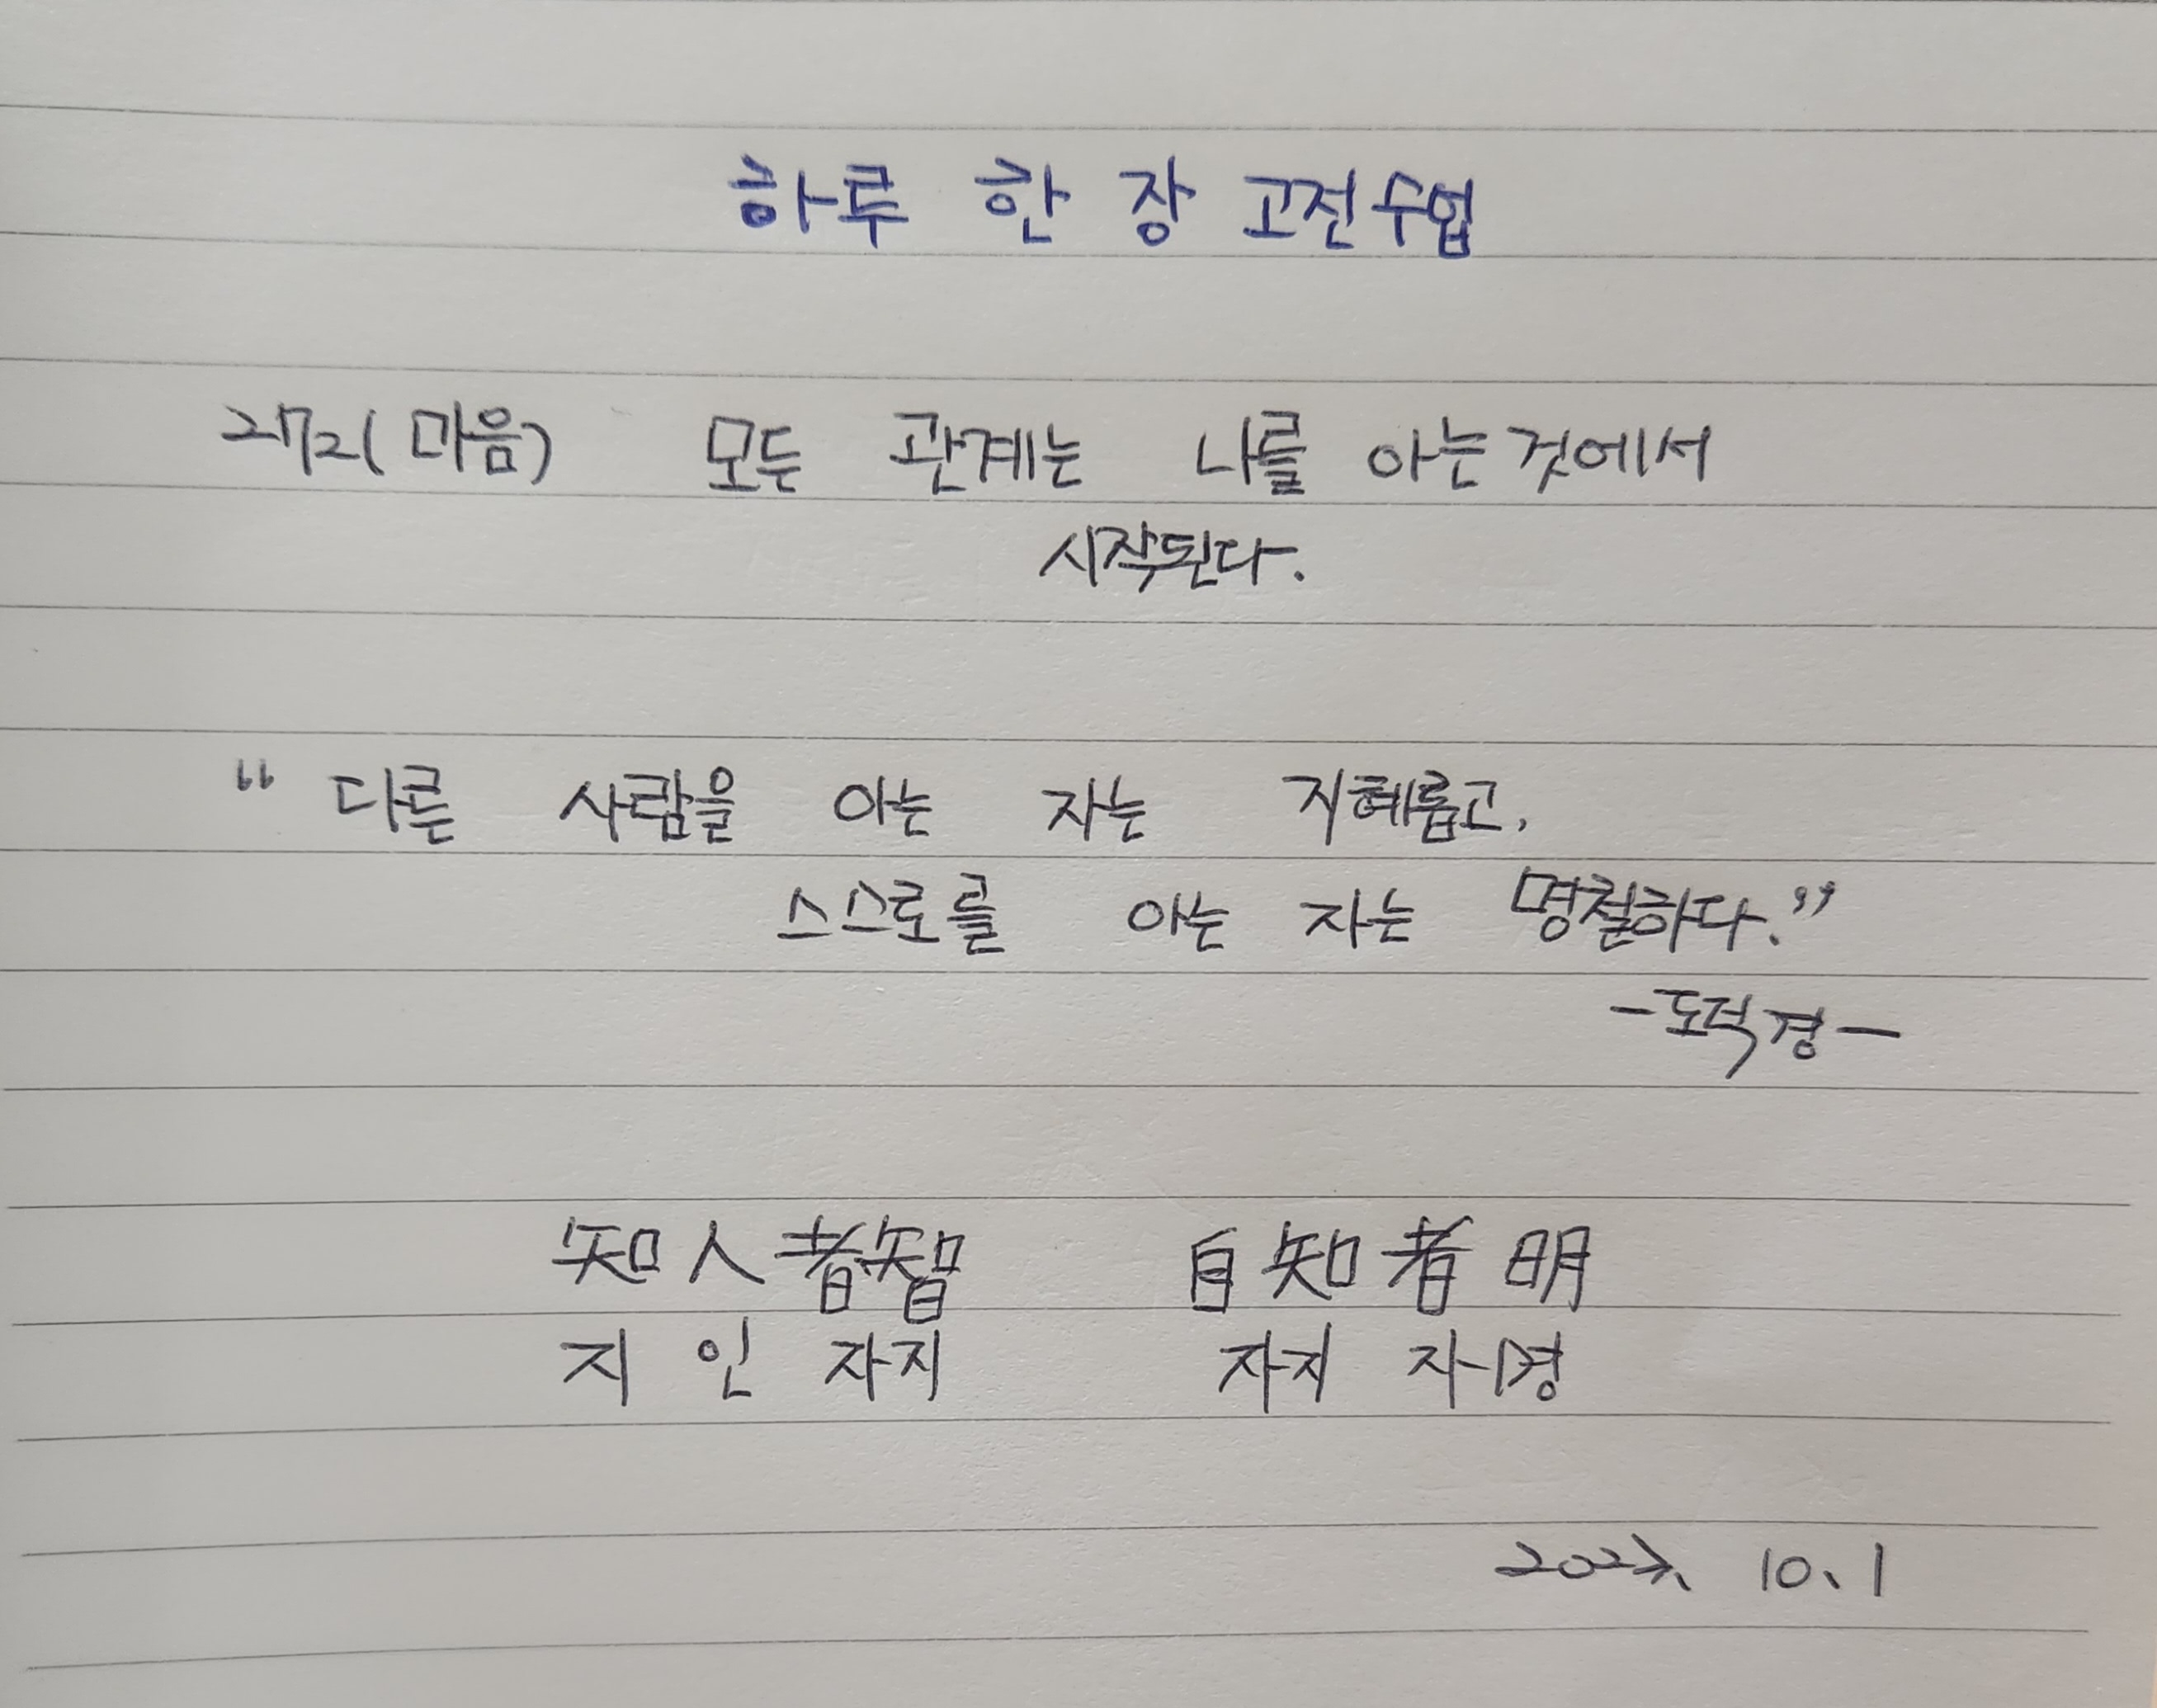 하루 한 장 고전수업
272(마음) 모든 관계는 나를 아는 것에서
시작된다.
“ 다른 사람을 아는 자는 지혜롭고,
스스로를 아는 자는 명철하다.”
-도덕경-
知人者智 自知者明
지 인 자지 자지 자명
10.1